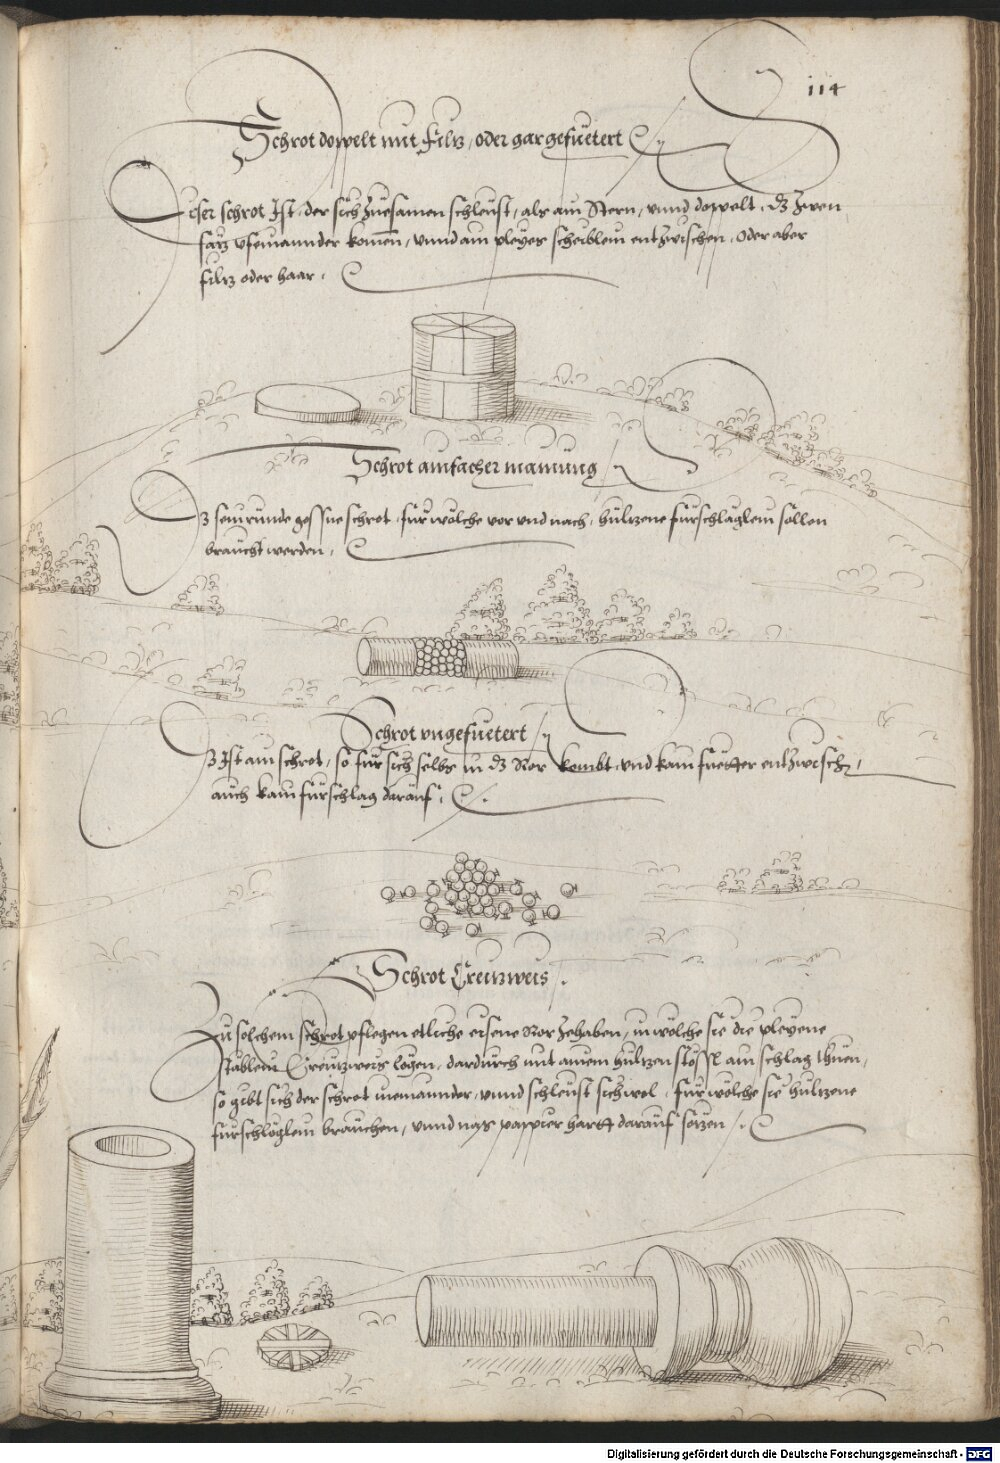 114
Schrot doppelt mit filtz, oder gar gefuetert
Diser schrot Ist, der sich zuesamen schleust, als ain Stern, vnnd doppelt, dz zwen
sätz vfeinannder komen, vnnd ain pleyes scheiblein entzwischen, oder aber
filtz oder haar.
Schrot ainfacher mainung
Dz sein runde gossne schrot, für wölche vor vnd nach, hültzene fürschläglein sollen
braucht werden.
Schrot vngefuetert
Dz Ist ain schrot, so für sich selbs in dz Ror kombt, vnd kain fuetter entzwisch,
auch kain fürschlag darauf.
Schrot Creutzweis.
Zu solchem schrot pflegen etliche eisene Ror zehaben, in wölche sie die pleyene
stäblein Creutzweis legen, dardurch mit ainem hültzen stössl ain schlag thuen,
so gibt sich der schrot ineinannder, vnnd schleust sich wol, für wölche sie hültzene
fürschlöglein brauchen, vnnd nas pappier hartt darauf setzen.
Digitalisierung gefördert durch die Deutsche Forschungsgemeinschaft - DFG